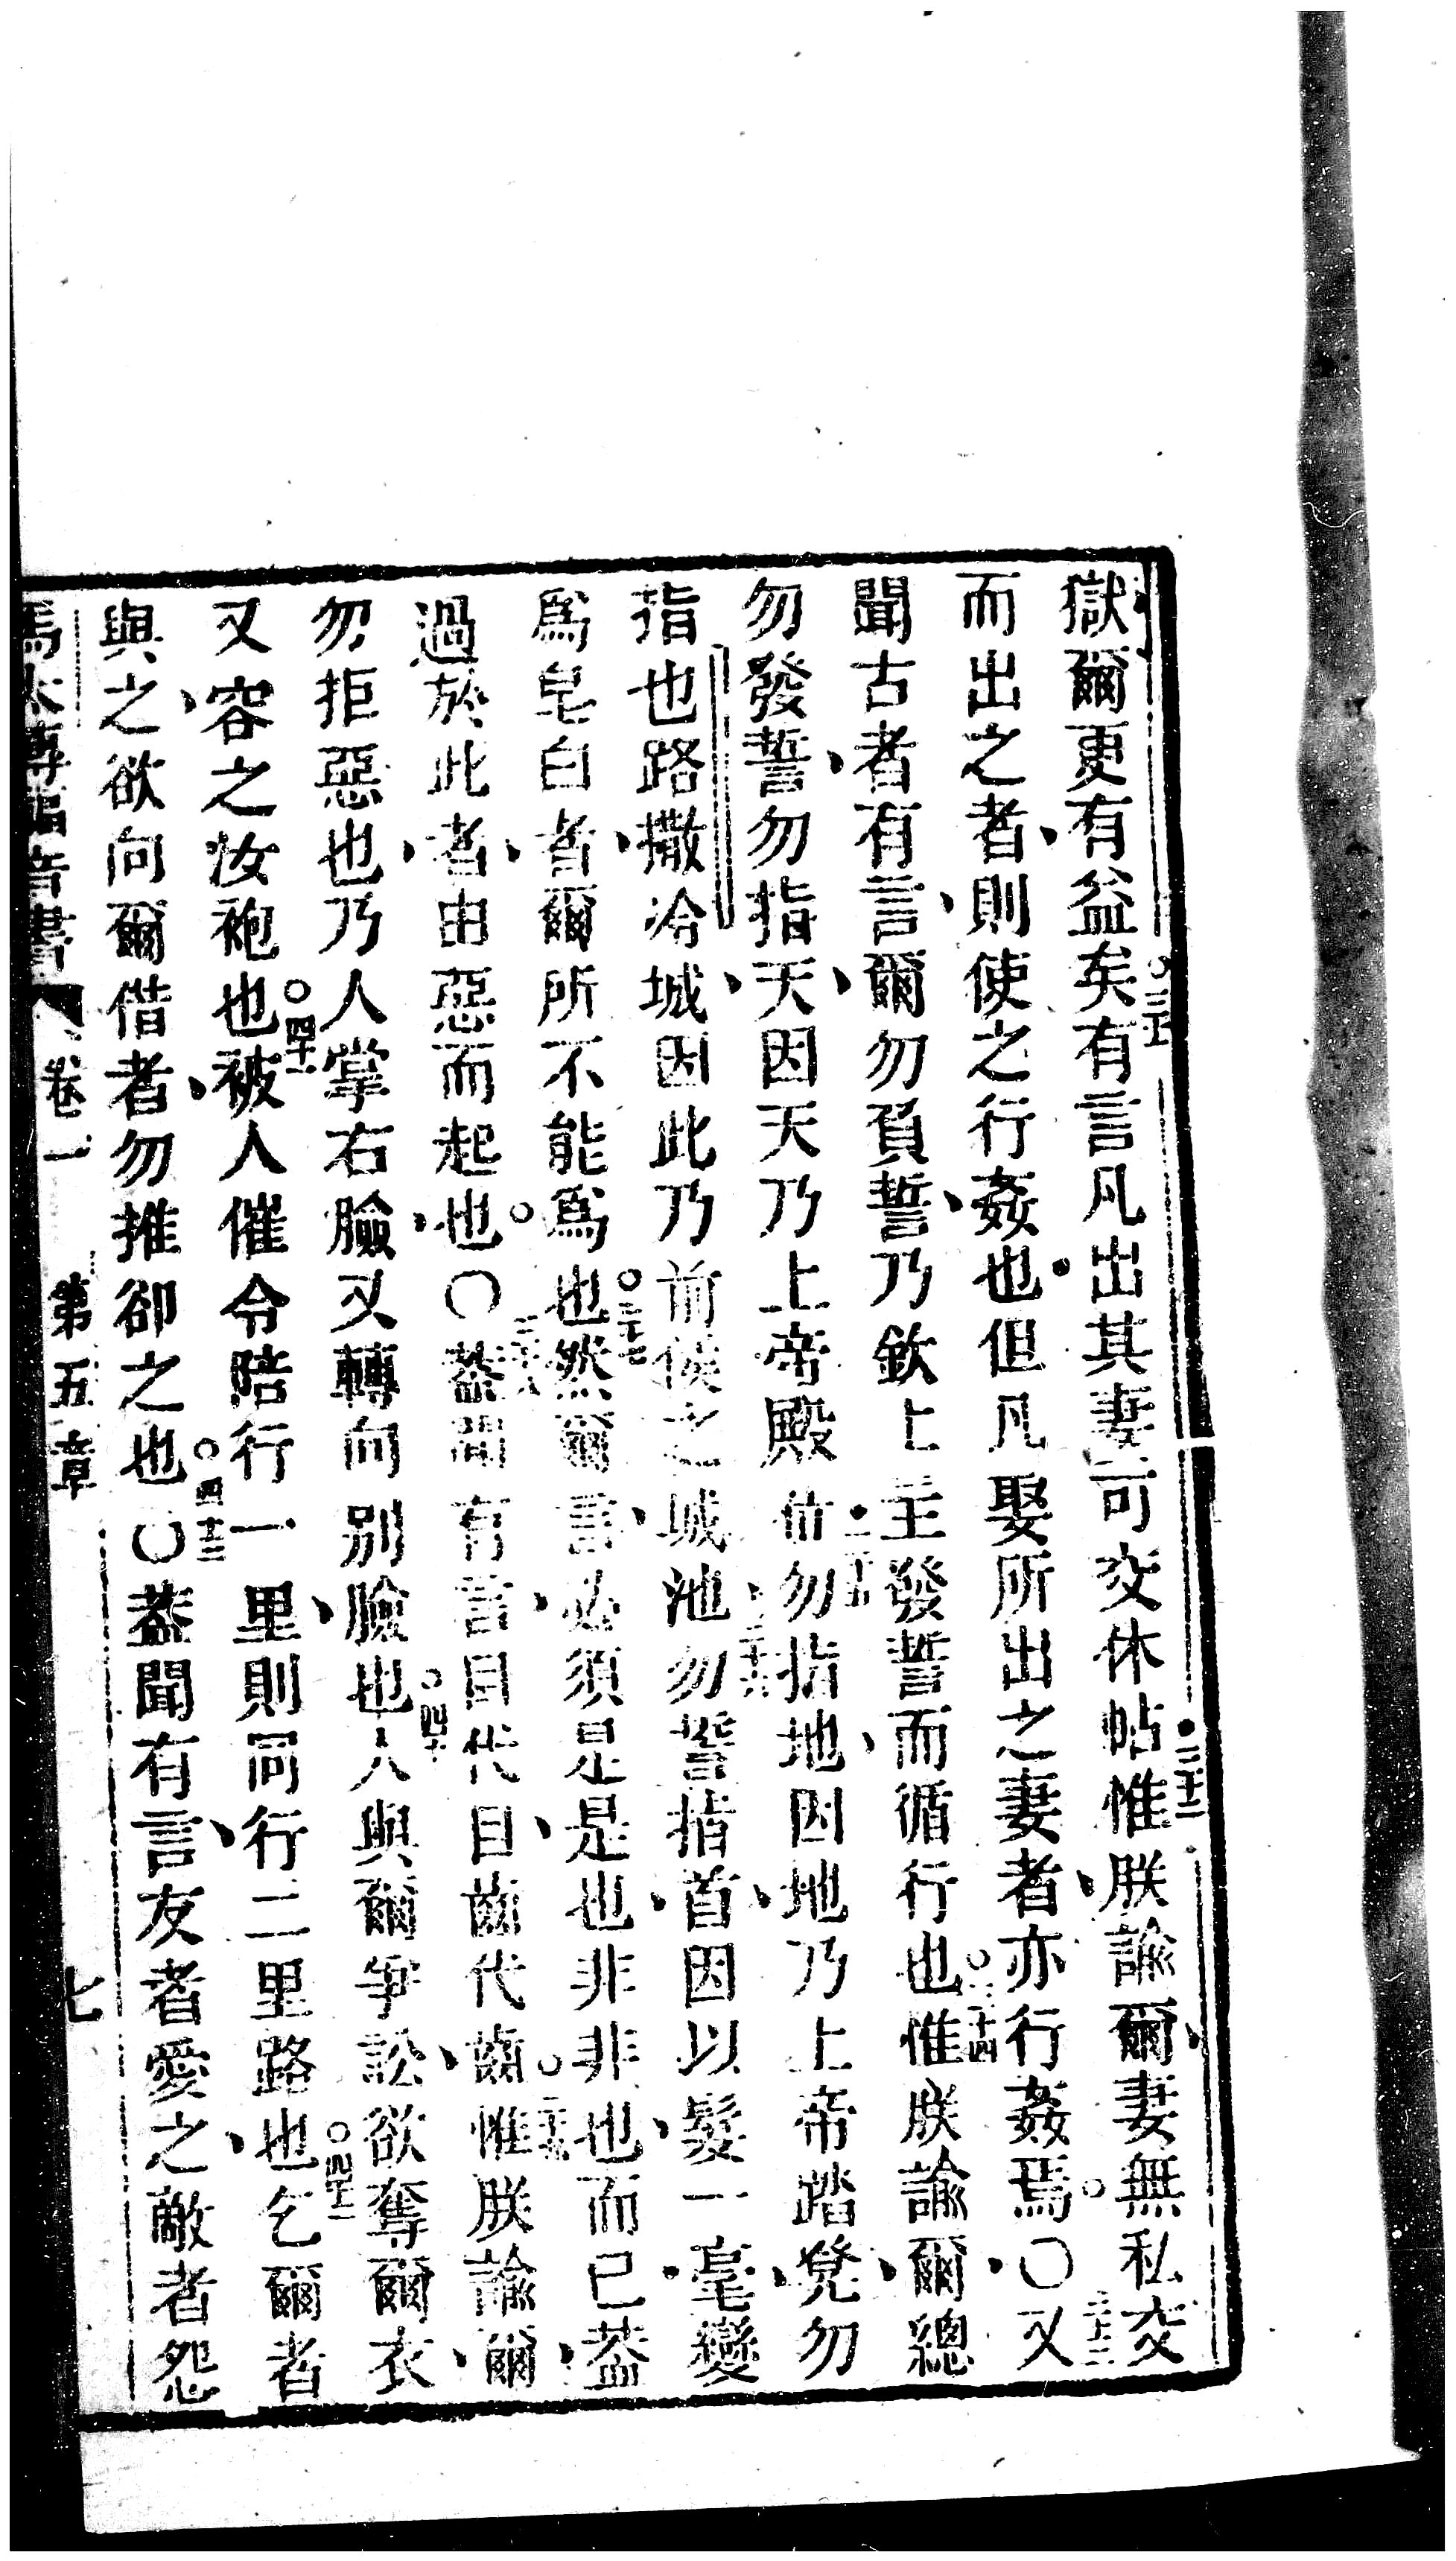 獄爾更有益矣有言凡出其妻可交休帖惟朕諭爾妻無私交
而出之者則使之行姦也但凡娶所出之妻者亦行姦焉〇又
聞古者有言爾勿負誓乃欽上主發誓而循行也惟朕諭爾總
勿發誓勿指天因天乃上帝殿也勿指地因地乃上帝踏凳勿
指也路撒冷城因此乃前侯之城池勿誓指首因以髮一毫變
爲皂白者爾所不能爲也然爾言必須是是也非非也而已蓋
過於此者由惡而起也〇蓋聞有言目代目齒代齒惟朕諭爾
勿拒惡也乃人掌右臉又轉向別臉也人與爾爭訟欲奪爾衣
又容之汝袍也被人催令陪行一里則同行二里路也乞爾者
與之欲向爾借者勿推卻之也〇蓋聞有言友者愛之敵者怨
馬太傳福音書 卷一 第五章 七